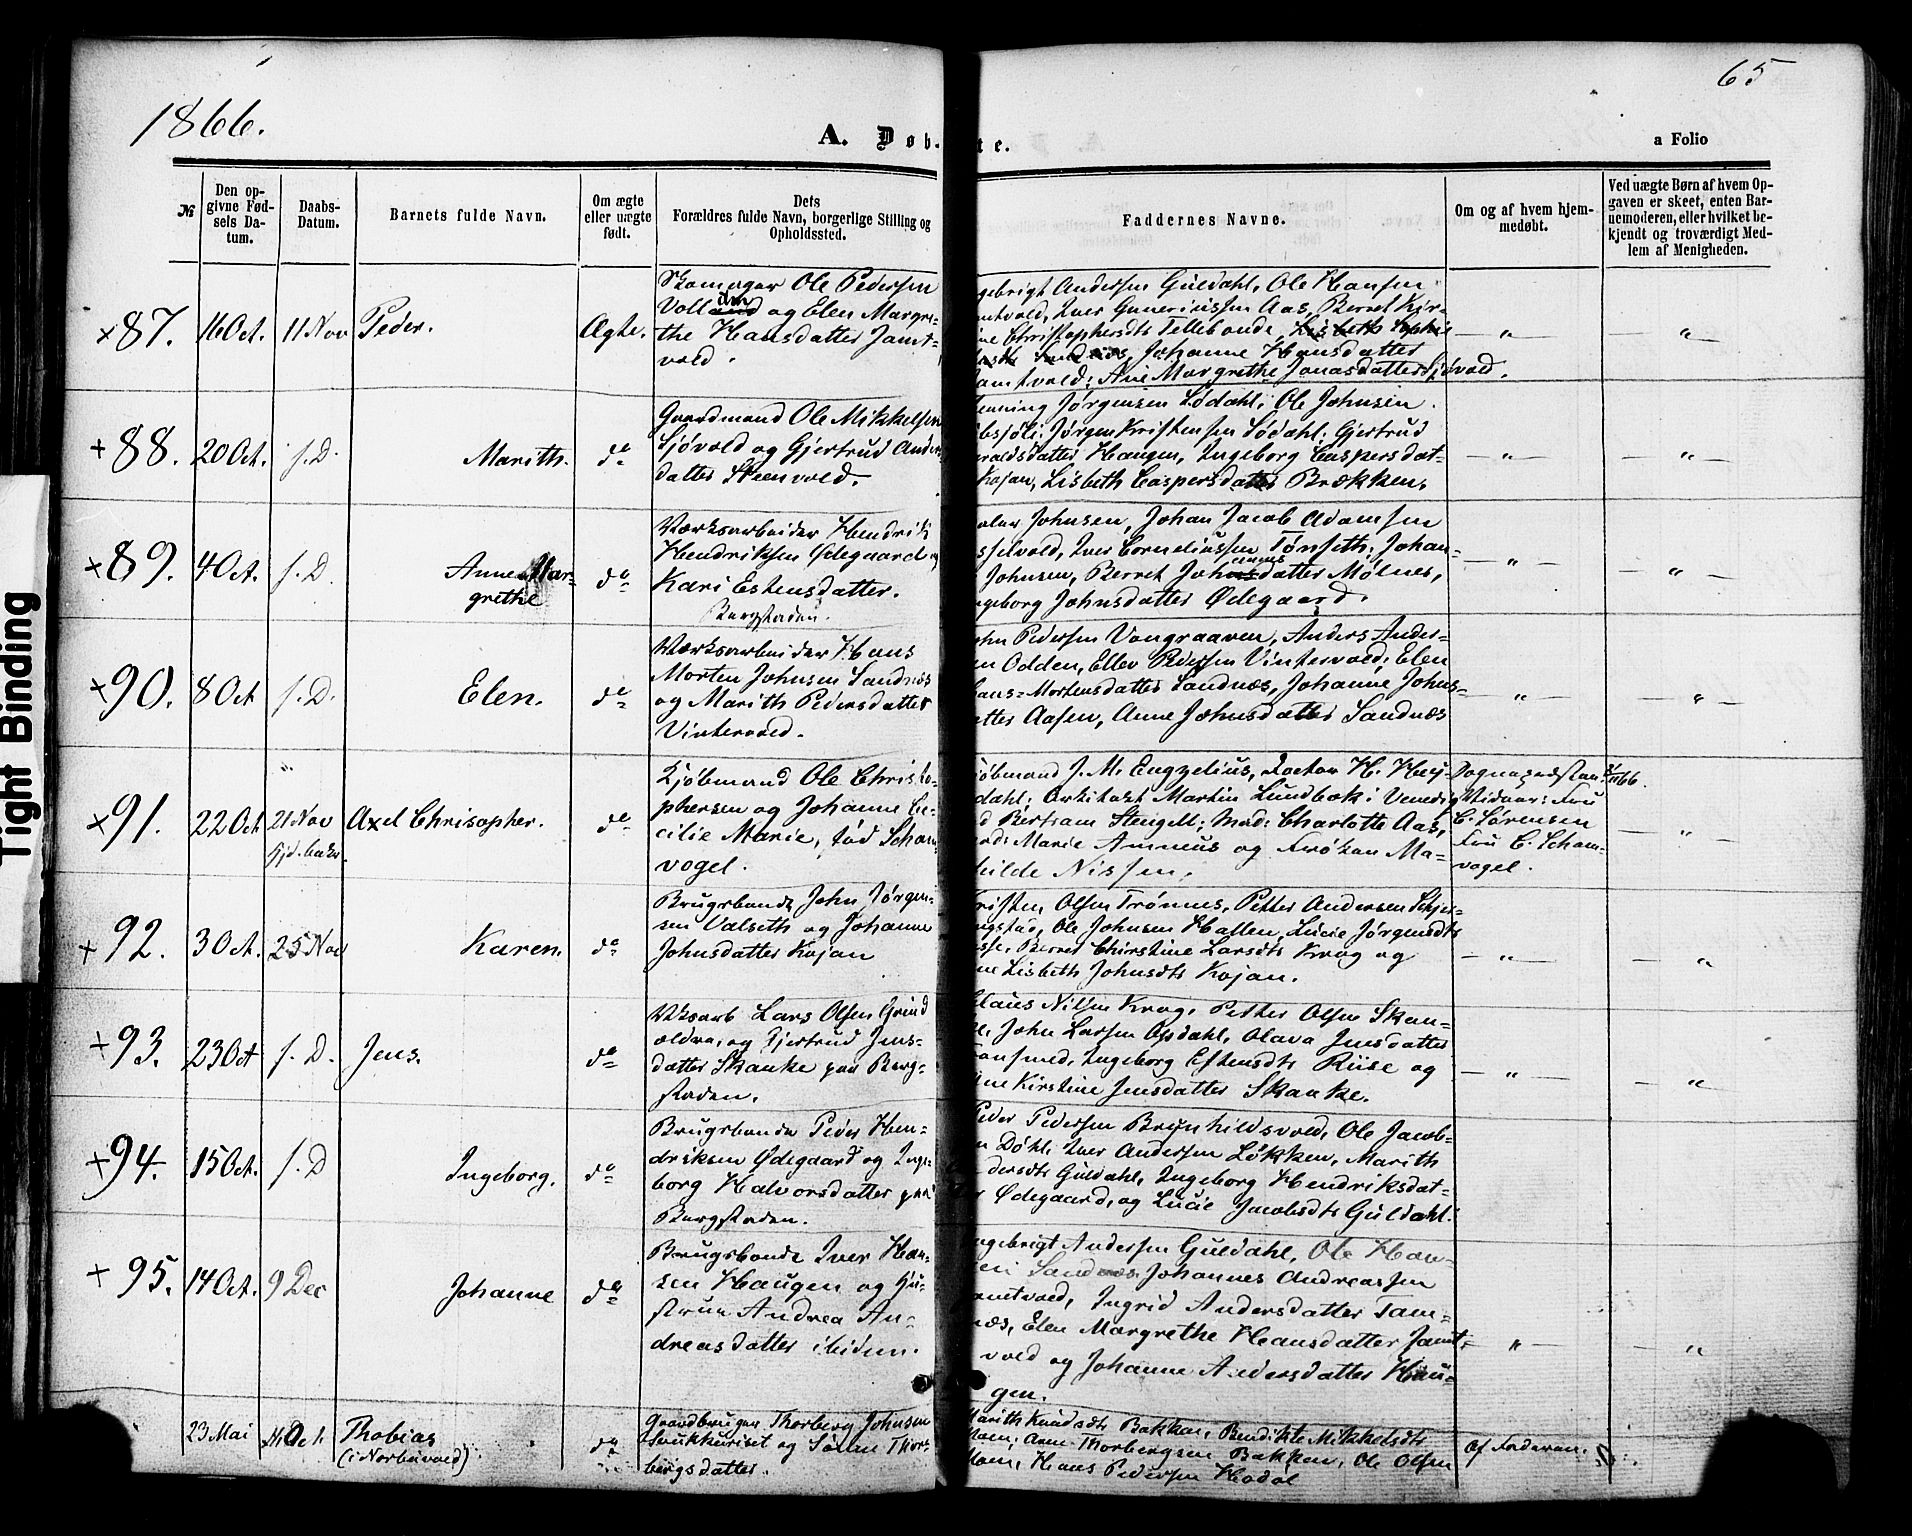 1866.
65
A. Døb
te.
a Folio
№
Den op-
givne Fød-
sels Da-
tum.
Daabs-
Datum.
Barnets fulde Navn.
Om ægte
eller uægte
født.
Dets
Forældres fulde Navn, borgerlige Stilling og
Opholdssted.
Faddernes Navne.
Om og af hvem hjem-
medøbt.
Ved uægte Børn af hvem Op-
gaven er skeet, enten Bar-
nemoderen, eller hvilket be-
kjendt og troværdigt Med-
lem af Menigheden.
×87. 16 Oct. 11 Nov Peder. Ægte.
Skomager Ole Pedersen
og Elen Margre-
the Hansdatter Jamt-
vold.
gebrigt Andersen Guldahl, Ole Hansen
mtvold, Iver Guneriussen Aas, Berret Kir-
ine Christophersdt Tellebonde,
Johanne Hansdatter
amtvold; Ane Margrethe Jonasdatter Sjøvold.
— " — — " —
+88. 20 Oct. f. D. Marith. do
Gaardmand Ole Mikkelsen
Sjøvold og Gjertrud Anders
datter Steenvold.
enning Jørgensen Sødahl; Ole Johnsen
Jørgen Kristensen Sødahl; Gjertrud
araldsdatter Haugen, Ingeborg Caspersdat-
Kojan, Lisbeth Caspersdatter Brækken.
— " — — " —
×89. 4 Oct. f. D. Anne Mar-
grethe do
Værksarbeider Hendrik
Hendriksen Ødegaard og
Kari Estensdatter.
Bergstaden.
Johnsen, Johan Jacob Adamsen
Iver Corneliussen Tønseth; Johan-
Johnsen, Berret datter Mølnes,
ngeborg Johnsdatter Ødegaard.
— " — — " —
×90. 8 Oct f. D. Elen. do
Værksarbeider Hans
Morten Johnsen Sandnæs
og Marith Pedersdatter
Vintervold.
ohn Pedersen Vongraaven, Anders Ander-
en Odden, Ellev Pedersen Vintervold; Elen
Hans-Mortensdatter Sandnæs, Johanne Johns-
atter Aasen, Anne Johnsdatter Sandnæs
— " — — " —
×91. 22 Oct 21 Nov Axel Chrisopher. do
Kjøbmand Ole Christo-
phersen og Johanne Ce-
cilie Marie, fød Scham-
vogel.
jøbmand J. M. Engzelius, Doctor H. Hey-
dahl; Arkitekt Martin Lundbæk i Venedig
Bertram Stengell; Mad: Charlotte Aas,
Marie Amneus og Frøken Ma-
hilde Nissen.
Vidner: Fru
C. Sørensen
Fru C. Scham-
vogel.
— " —
+92. 30 Oct. 25 Nov Karen. do
Brugsbonde John Jørgen-
sen Valseth og Johanne
Johnsdatter Kojan
risten Olsen Trønnes, Petter Andersen Skjer-
ngstad, Ole Johnsen Hallen, Lucie Jørgensdtr
Berret Chirstine Larsdtr Krog og
ne Lisbeth Johnsdtr Kojan.
— " — — " —
+93. 23 Oct f. D. Jens. do
Vksarb Lars Olsen Grind
og Gjertrud Jens-
datter Skanke paa Berg-
staden.
Claus Nilsen Krog, Petter Olsen Skan-
ke, John Larsen Opdahl, Olava Jensdatter
Ingeborg Estensdtr Riise og
ne Kirstine Jensdatter Skanke.
— " — — " —
+94. 15 Oct. f. D Ingeborg. do
Brugsbonde Peder Hen-
driksen Ødegaard og Inge-
borg Halvorsdatter paa
Bergstaden.
Peder Pedersen Brynhildsvold, Ole Jacob-
n Døhl, Iver Andersen Løkken, Marith
dersdtr Guldahl, Ingeborg Hendriksdat-
r Ødegaard, og Lucie Jacobsdtr Guldahl.
+95. 14 Oct. 9 Dec Johanne do
Brugsbonde Iver Han-
sen Haugen og Hu-
strue Andrea An-
dreasdatter ibidem.
ngebrigt Andersen Guldahl, Ole Han-
sen Sandnæs, Johannes Andreassen
amtvold, Ingrid Andersdatter Tam-
næs, Elen Margrethe Hansdatter Jamt-
vold og Johanne Andersdatter Hau-
gen.
— " — — " —
23 Mai Thobias
(i Norbuvold) do
Gaardbruger Thorberg Johnsen
og Thor-
bergsdatter.
Marith Knudsdtr Bakken, Bendikte Mikkelsdtr
Moen; Arne Thorbergsen Bakken, Ole Olsen
Moen, Hans Pedersen Hodal
Af Faderen.
Tight Binding